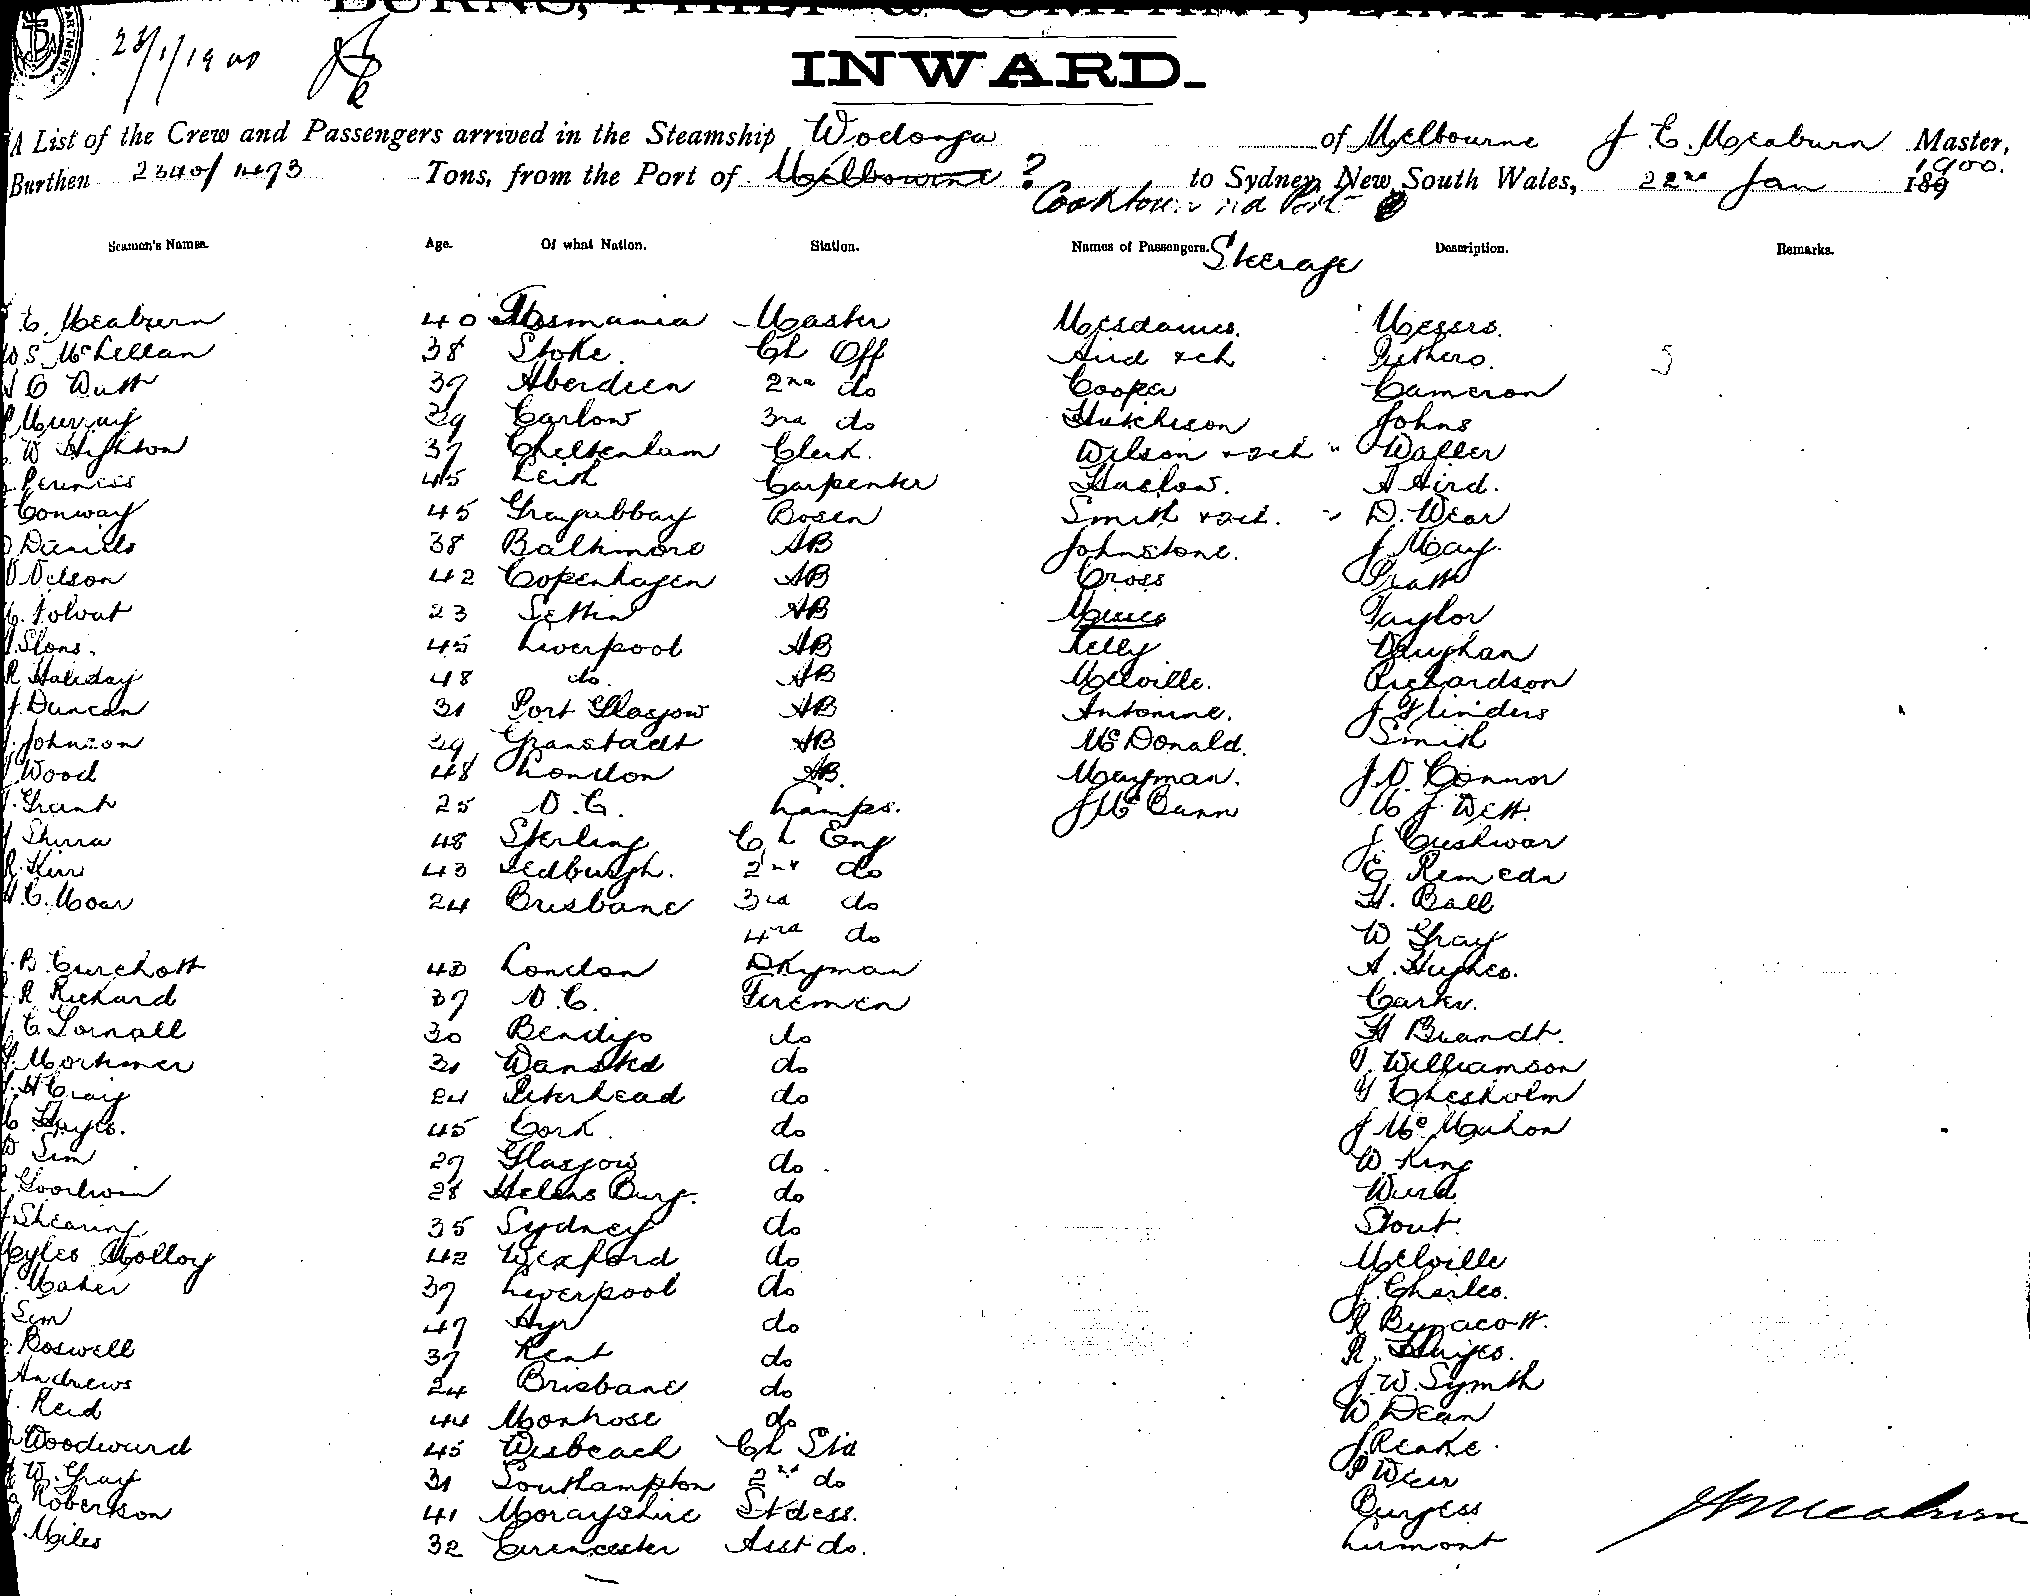 BURNS, PHILP & COMPANY, LIMITED.
23/1/1900
INWARD.
A List of the Crew and Passengers arrived in the Steamship Wodonga of Melbourne J C. Meaburn Master,
Burthen 2340/1493 Tons, from the Port of Melbourne ? to Sydney, New South Wales, 22nd Jan 1900.
Cooktown
Seamen's Names. Age. Of what Nation. Station. Names of Passengers. Description. Remarks.
Steerage
C. Meaburn 40 Tasmania Master Mesdames. Messrs.
S. McLellan 38 Stoke. Ch Off Aird & ch Pethers.
39 Aberdeen 2nd do Cooper Cameron
Murray 29 Carlow 3rd do Hutchison Johns
W Highton 37 Cheltenham Clerk. Wilson & 2ch Waller
45 Leith Carpenter Harlow. A Aird.
Conway 45 Bosen Smith D. Wear
Daniels 38 Baltimore AB Johnstone. J. May.
Nelson 42 Copenhagen AB Cross Pratt
23 Settin AB Taylor
Slons. 45 Liverpool AB Kelly Vaughan
R Haliday 48 do. AB Melville. Richardson
J. Duncan 31 Port Glasgow AB Antonine. J Flinders
Johnson 29 AB McDonald. Smith
Wood 48 London AB. Mayman. J. O. Connor
Grant 25 D.G. Lamps. J McCunn J Wett.
Shirra 48 Sterling Ch Eng J.
R. Kerr 43 Jedburgh. 2nd do
C. Moar 24 Brisbane 3rd do H. Ball
4rd do W Gray
B. Curchott 40 London Dkyman A. Hughes.
R Richard 37 Firemen
C. Gornall 30 Bendigo do H Brandt.
Mortimer 31 Wansted do Williamson
H Craig 24 Peterhead do Chesholm
Hayes. 45 Cork. do J McMahon
Sim 27 Glasgow do. W. King
Goodwin 28 Helens Burg. do
Shearing 35 Sydney do Stout.
Myles Molloy 42 Wexford do Melville
Maher 37 Liverpool do J. Charles.
Sim 47 Ayr do R Bynacott.
Boswell 37 Kent do R. Hayes.
Andrews 24 Brisbane do J. W. Symth
Reid 44 Monrose do W Dean
Woodward 45 Wisbeach Ch Std J Reake.
W. Gray 31 Southampton 2nd do P Weir
Robertson 41 Morayshire Stdess. Burgess
Miles 32 Cirencester Asst do. Lumont
J C Meaburn